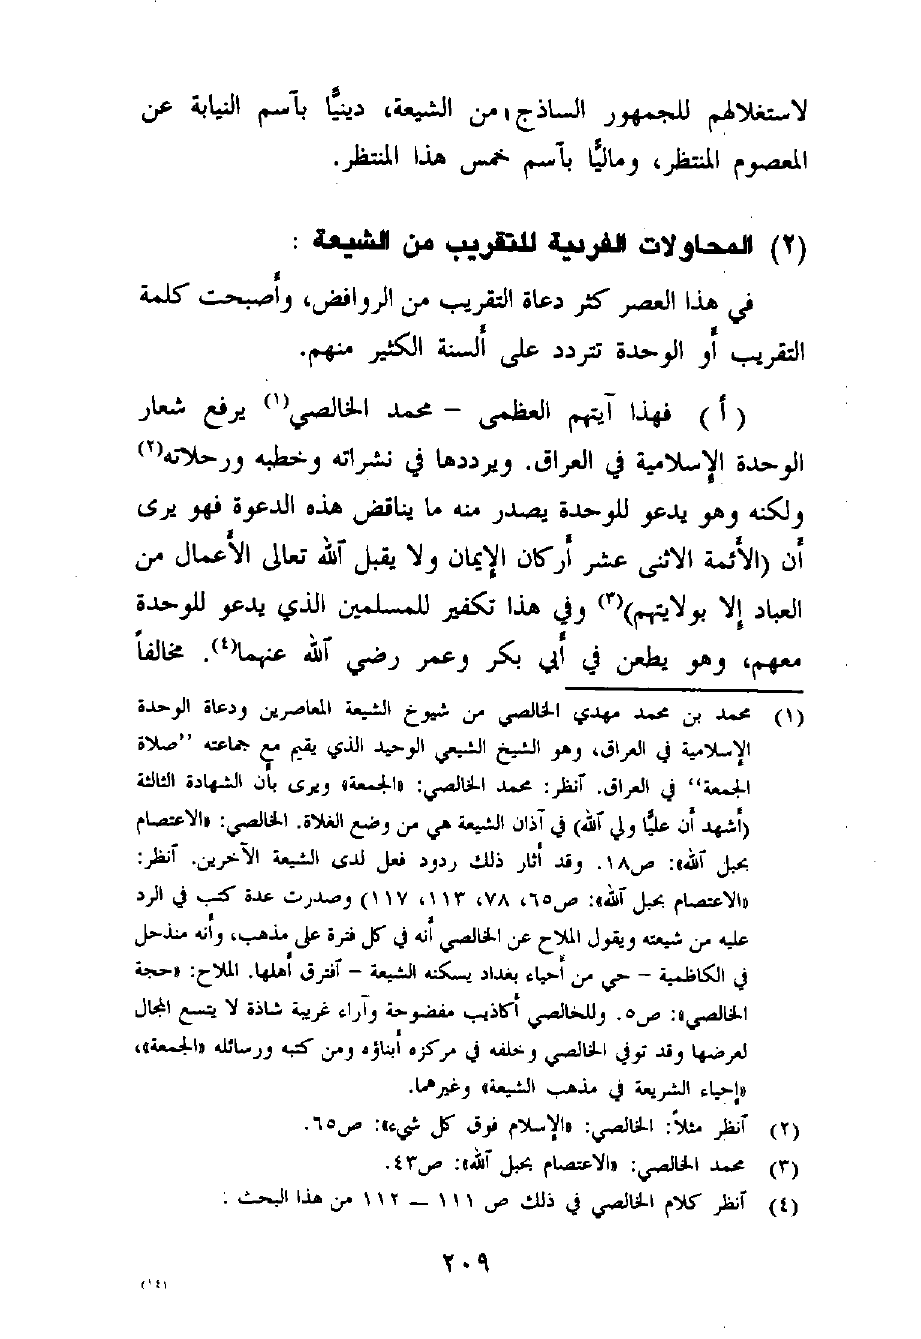 لاستغلالهم للجمهور الساذج من الشيعة، دينيًّا بآسم النيابة عن
المعصوم المنتظر، وماليًّا بآسم خمس هذا المنتظر.
(٢) المحاولات الفردية للتقريب من الشيعة :
في هذا العصر كثر دعاة التقريب من الروافض، وأصبحت كلمة
التقريب أو الوحدة تتردد على ألسنة الكثير منهم.
( أ ) فهذا آيتهم العظمى – محمد الخالصي(١) يرفع شعار
الوحدة الإسلامية في العراق. ويرددها في نشراته وخطبه ورحلاته(٢)
ولكنه وهو يدعو للوحدة يصدر منه ما يناقض هذه الدعوة فهو يرى
أن (الأئمة الاثنى عشر أركان الإيمان ولا يقبل آلله تعالى الأعمال من
العباد إلا بولايتهم)(٣) وفي هذا تكفير للمسلمين الذي يدعو للوحدة
معهم، وهو يطعن في أبي بكر وعمر رضي آلله عنهما(٤). مخالفاً
(١) محمد بن محمد مهدي الخالصي من شيوخ الشيعة المعاصرين ودعاة الوحدة
الإسلامية في العراق، وهو الشيخ الشيعي الوحيد الذي يقيم مع جماعته ”صلاة
الجمعة“ في العراق. آنظر: محمد الخالصي: «الجمعة» ويرى بأن الشهادة الثالثة
(أشهد أن عليًّا ولي آلله) في آذان الشيعة هي من وضع الغلاة. الخالصي: «الاعتصام
بحبل آلله»: ص١٨. وقد أثار ذلك ردود فعل لدى الشيعة الآخرين. آنظر:
«الاعتصام بحبل آلله»: ص٦٥، ٧٨، ١١٣، ١١٧) وصدرت عدة كتب في الرد
عليه من شيعته ويقول الملاح عن الخالصي أنه في كل فترة على مذهب، وأنه منذحل
في الكاظمية – حي من أحياء بغداد يسكنه الشيعة – آفترق أهلها. الملاح: «حجة
الخالصي»: ص٥. وللخالصي أكاذيب مفضوحة وآراء غريبة شاذة لا يتسع المجال
لعرضها وقد توفي الخالصي وخلفه في مركزه أبناؤه ومن كتبه ورسائله «الجمعة»،
«إحياء الشريعة في مذهب الشيعة» وغيرهما.
(٢) آنظر مثلاً: الخالصي: «الإسلام فوق كل شيء»: ص٦٥.
(٣) محمد الخالصي: «الاعتصام بحبل آلله»: ص٤٣.
(٤) آنظر كلام الخالصي في ذلك ص ١١١ – ١١٢ من هذا البحث :
٢٠٩
(١٤)